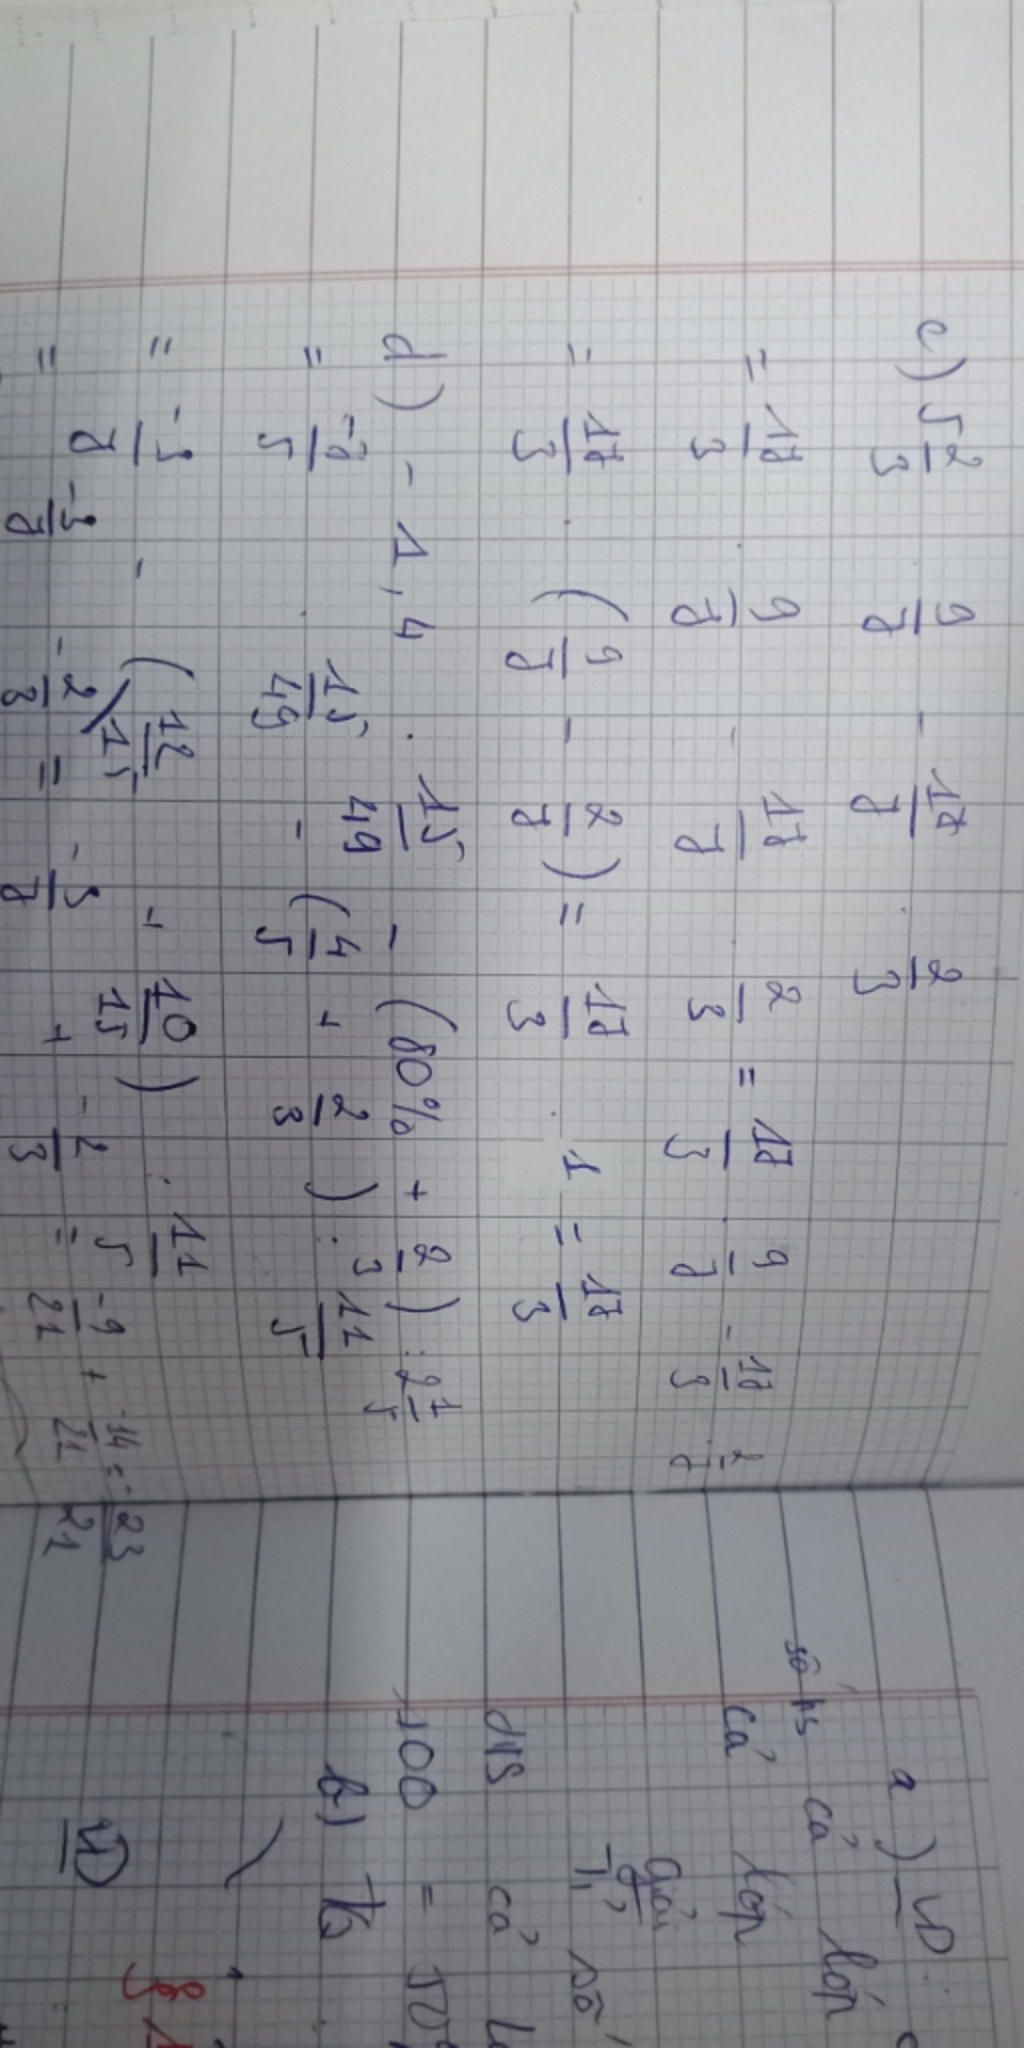 c) 5 2/3 . 9/7 - 17/7 . 2/3
= 17/3 . 9/7 - 17/7 . 2/3 = 17/3 . 9/7 - 17/3 . 2/7
= 17/3 . (9/7 - 2/7) = 17/3 . 1 = 17/3
d) - 1,4 . 15/49 - (80% + 2/3) : 2 1/5
= -7/5 . 15/49 - (4/5 + 2/3) : 11/5
= -3/7 - (12/15 + 10/15) . 11/5
= -3/7 - 2/3 = -3/7 + -2/3 = -9/21 + -14/21 = -23/21
a) VD:
số hs cả lớp
cả lớp
Giải
Tỉ số
cả
100 = 50
b)
VD
§ 1